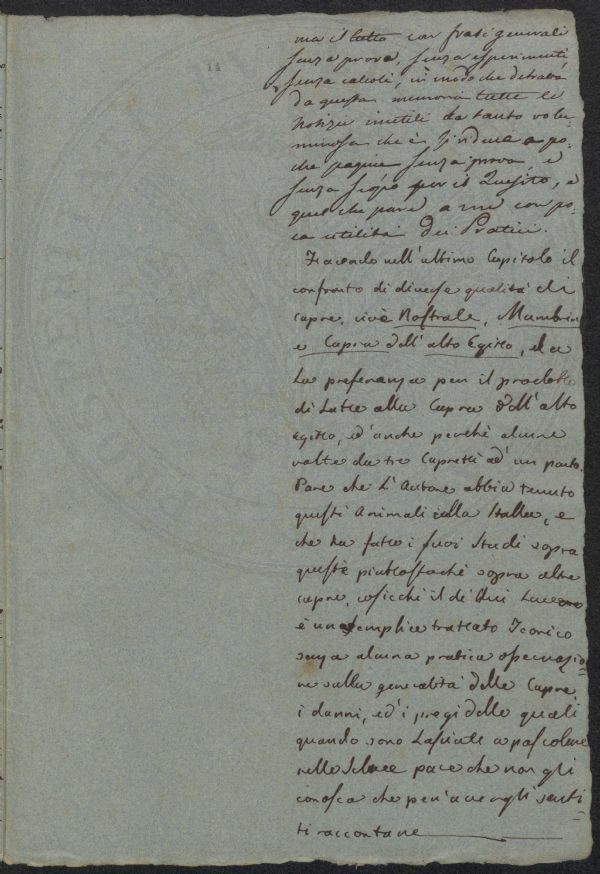 ma il tutto con frasi generali
senza prova, senza esperimenti,
senza calcoli, in modo che detratta
da questa memoria tutte le
Notizie inutili da tanto volu
minosa che è si riduce a po:
che pagine senza prova, e
senza scopo per il Quesito, e
quel che pare a me con po:
ca utilità dei Pratici.
Facendo nell'ultimo Capitolo il
confronto di diverse qualità di
capre, cioè Nostrale, Mambrin
e Capra dell'alto Egitto, da
La preferenza per il prodotto
di Latte alla Capra dell'alto
Egitto, ed'anche perchè alcune
volte da tre Capretti ad'un parto.
Pare che L'Autore abbia tenuto
questi Animali nella Stalla, e
che ha fatto i suoi Studi sopra
queste piuttostochè sopra altre
capre, cosicchè il di Lui
è un semplice trattato Teorico
senza alcuna pratica osservazio
ne sulla generalità delle Capre,
i danni, ed'i pregi delle quali
quando sono Lasciate a pascolare
nelle Selve pare che non gli
conosca che per avergli senti
ti raccontare